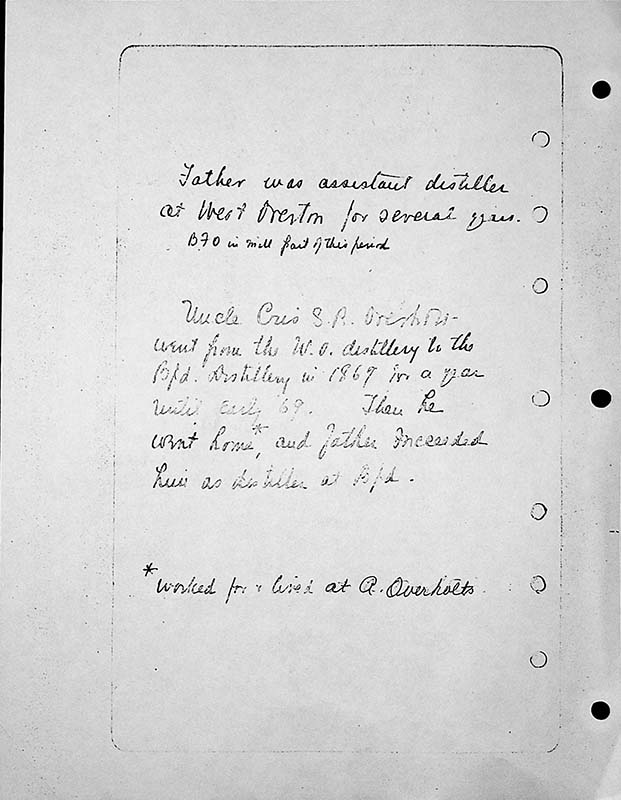 Father was assistant distiller
at West Overton for several years.
B F O in mill part of this period
Uncle Cris S.R. Overholt
went from the W.O. distillery to the
Bfd. Distillery in 1867 for a year
until early 69. Then he
went home*, and father succeeded
him as distiller at Bfd.
*worked for & lived at A. Overholts